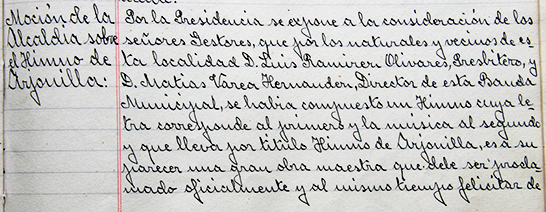 Moción de la
Alcaldía sobre
el Himno de
Arjonilla:
Por la Presidencia se expone a la consideración de los
señores Gestores, que por los naturales y vecinos de es-
ta localidad D. Luis Ramirez Olivares, Presbítero, y
D. Matías Varea Hernandez, Director de esta Banda
Municipal, se habia compuesto un Himno cuya le-
tra corresponde al primero y la música al segundo
y que lleva por titulo Himno de Arjonilla, es a su
parecer una gran obra maestra que debe ser procla-
mado oficialmente y al mismo tiempo felicitar de